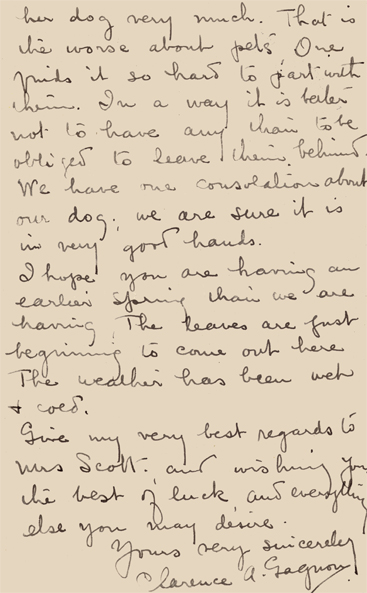 her dog very much. That is
the worse about pets One
finds it so hard to part with
them. In a way it is better
not to have any than to be
obliged to leave them behind.
We have one consolation about
our dog; we are sure it is
in very good hands.
I hope you are having an
earlier spring than we are
having. The leaves are just
beginning to come out here
The weather has been wet
& cold.
Give my very best regards to
Mrs Scott. and wishing you
the best of luck and everything
else you may desire.
Yours very sincerely
Clarence A. Gagnon